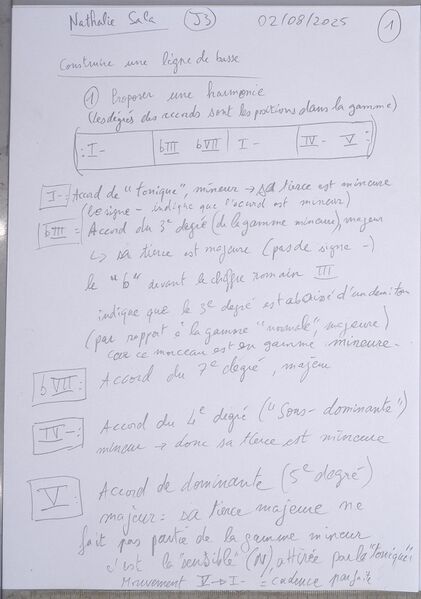 Nathalie Sala J3 02/08/2025 1
Construire une ligne de basse
1 Proposer une harmonie
(les degrés des accords sont les positions dans la gamme)
: I- | bIII bVII | I- | IV- V :
I- : Accord de "tonique", mineur → sa tierce est mineure
(le signe - indique que l'accord est mineur)
bIII = Accord du 3e degré (de la gamme mineure), majeur
↳ sa tierce est majeure (pas de signe -)
le "b" devant le chiffre romain III
indique que le 3e degré est abaissé d'un demi ton
(par rapport à la gamme "normale", majeure)
car ce morceau est en gamme mineure -
bVII : Accord du 7e degré, majeur
IV- : Accord du 4e degré ("Sous-dominante")
mineur → donc sa tierce est mineure
V : Accord de dominante (5e degré)
majeur : sa tierce majeure ne
fait pas partie de la gamme mineur
c'est la "sensible" (N), attirée par la "tonique"
Mouvement V → I- = cadence parfaite